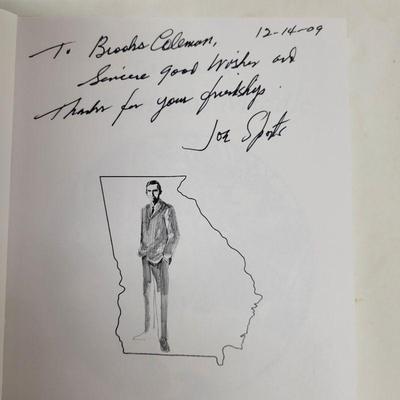 12-14-09
To Brooks Coleman,
Sincere good wishes and
Thanks for your friendship.
Joe Sports